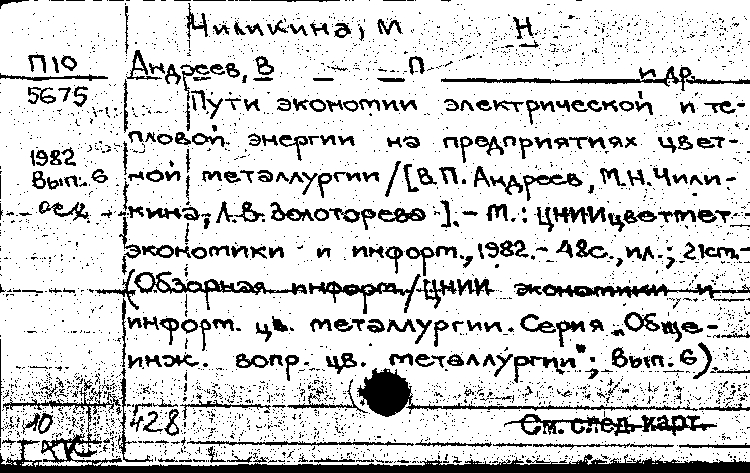 Чиликина, М Н
П10 Андреев, В П и др.
5675 Пути экономии электрической и те-
пловой энергии на предприятиях цвет-
1982 Вып. 6 ной металлургии / [В.П. Андреев, М.Н. Чили-
кина, Л.В. Золоторева]. - М.: ЦНИИцветмет
экономики и информ., 1982. - 48с., ил.; 21см. -
(Обзорная информ. / ЦНИИ экономики и
информ. цв. металлургии. Серия „Обще-
инж. вопр. цв. металлургии"; Вып. 6).
10 428 См. след. карт.